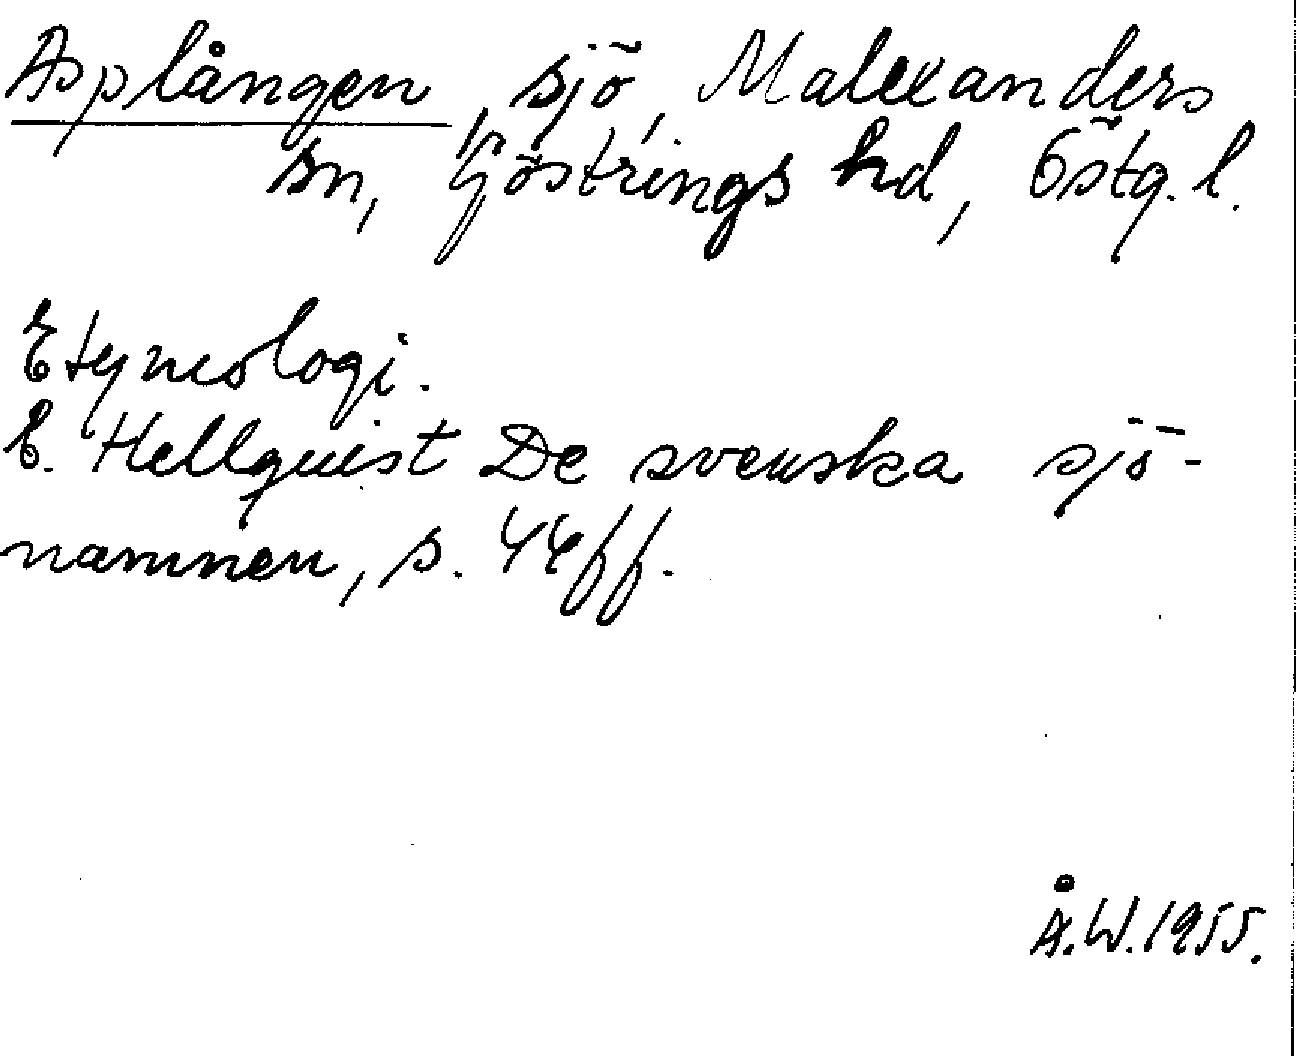 Asplången, sjö, Malexanders
sn, Göstrings hd, Östg. l.
Etymologi.
E. Hellquist De svenska sjö-
namnen, s. 44 ff.
Å.W. 1955.